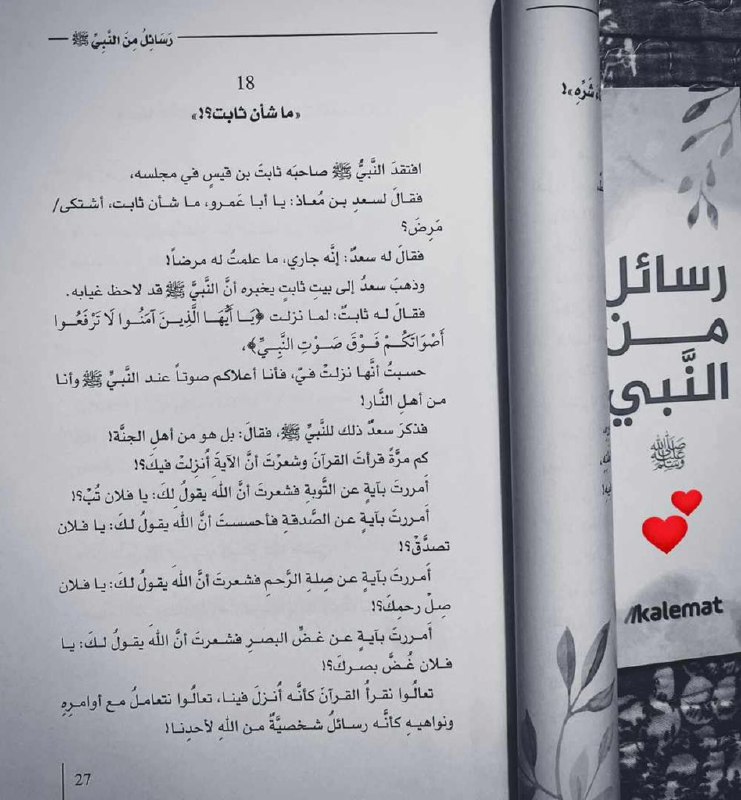 رَسَائِلُ مِنَ النَّبِيِّ ﷺ
18
«ما شأن ثابت؟!»
افتقدَ النَّبيُّ ﷺ صاحبَه ثابتَ بن قيسٍ في مجلسه،
فقالَ لسعدِ بن مُعاذ: يا أبا عَمرو، ما شأن ثابت، أشتكى/
مَرِضَ؟
فقالَ له سعدٌ: إنَّه جاري، ما علمتُ له مرضاً!
وذهبَ سعدُ إلى بيتِ ثابتٍ يخبره أنَّ النَّبيَّ ﷺ قد لاحظ غيابه.
فقالَ له ثابتٌ: لما نزلت ﴿يَا أَيُّهَا الَّذِينَ آمَنُوا لَا تَرْفَعُوا
أَصْوَاتَكُمْ فَوْقَ صَوْتِ النَّبِيِّ﴾،
حسبتُ أنَّها نزلتْ فيّ، فأنا أعلاكم صوتاً عند النَّبيِّ ﷺ وأنا
من أهلِ النَّار!
فذكرَ سعدٌ ذلك للنَّبيِّ ﷺ، فقالَ: بل هو من أهلِ الجنَّة!
كم مرَّةً قرأتَ القرآنَ وشعرْتَ أنَّ الآيةَ أُنزِلتْ فيكَ؟!
أمررتَ بآيةٍ عن التَّوبةِ فشعرتَ أنَّ اللّٰهَ يقولُ لكَ: يا فلان تُبْ؟!
أَمررتَ بآيةٍ عن الصَّدقةِ فأحسستَ أنَّ اللّٰهَ يقولُ لكَ: يا فلان
تصدَّقْ؟!
أَمررتَ بآيةٍ عن صِلةِ الرَّحمِ فشعرتَ أنَّ اللّٰهَ يقولُ لكَ: يا فلان
صِلْ رحمِكَ؟!
أَمررتَ بآيةٍ عن غضِّ البصرِ فشعرتَ أنَّ اللّٰهَ يقولُ لكَ: يا
فلان غُضَّ بصركَ؟!
تعالُوا نقرأُ القرآنَ كأنَّه أُنزلَ فينا، تعالُوا نتعاملُ مع أوامرِهِ
ونواهيهِ كأنَّه رسائلُ شخصيَّةٌ من اللّٰهِ لأحدِنا!
27
شَرِّهِ»!
رسائل
من
النَّبي
ﷺ
kalemat